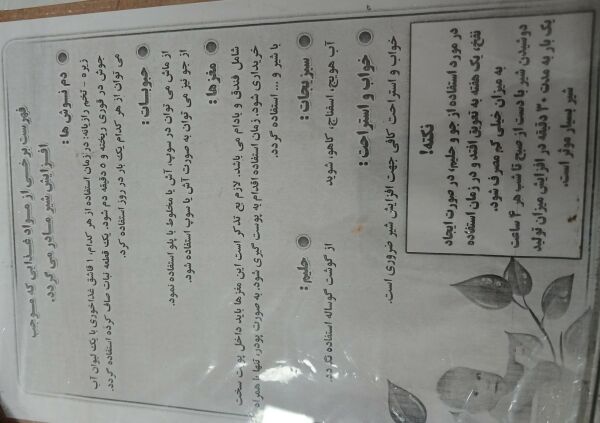 فهرست برخی از مواد غذایی که موجب
افزایش شیر مادر می گردد.
دم نوش ها :
زیره - تخم رازیانه: در زمان استفاده از هر کدام، ۱ قاشق غذاخوری با یک لیوان آب
جوش در قوری ریخته و ۵ دقیقه دم شود. یک قطعه نبات صاف کرده استفاده گردد.
می توان از هر کدام یک بار در روز استفاده کرد.
حبوبات :
از ماش می توان در سوپ، آش یا مخلوط با پلو استفاده نمود.
از جو نیز می توان به صورت آش یا سوپ استفاده شود.
مغزها :
شامل فندق و بادام می باشند. لازم به تذکر است این مغزها باید داخل پوست سخت
خریداری شود. زمان استفاده اقدام به پوست گیری شود. به صورت پودر، تنها یا همراه
با شیر و ... استفاده گردد.
سبزیجات :
آب هویج، اسفناج، کاهو، شوید
حلیم :
از گوشت گوساله استفاده گردد.
خواب و استراحت :
خواب و استراحت کافی جهت افزایش شیر ضروری است.
نکته!
در مورد استفاده از جو و حلیم، در صورت ایجاد
نفخ، یک هفته به تعویق افتد و در زمان استفاده
به میزان خیلی کم مصرف شود.
دوشیدن شیر با دست از صبح تا شب هر ۴ ساعت
یک بار به مدت ۳۰ دقیقه در افزایش میزان تولید
شیر بسیار موثر است.